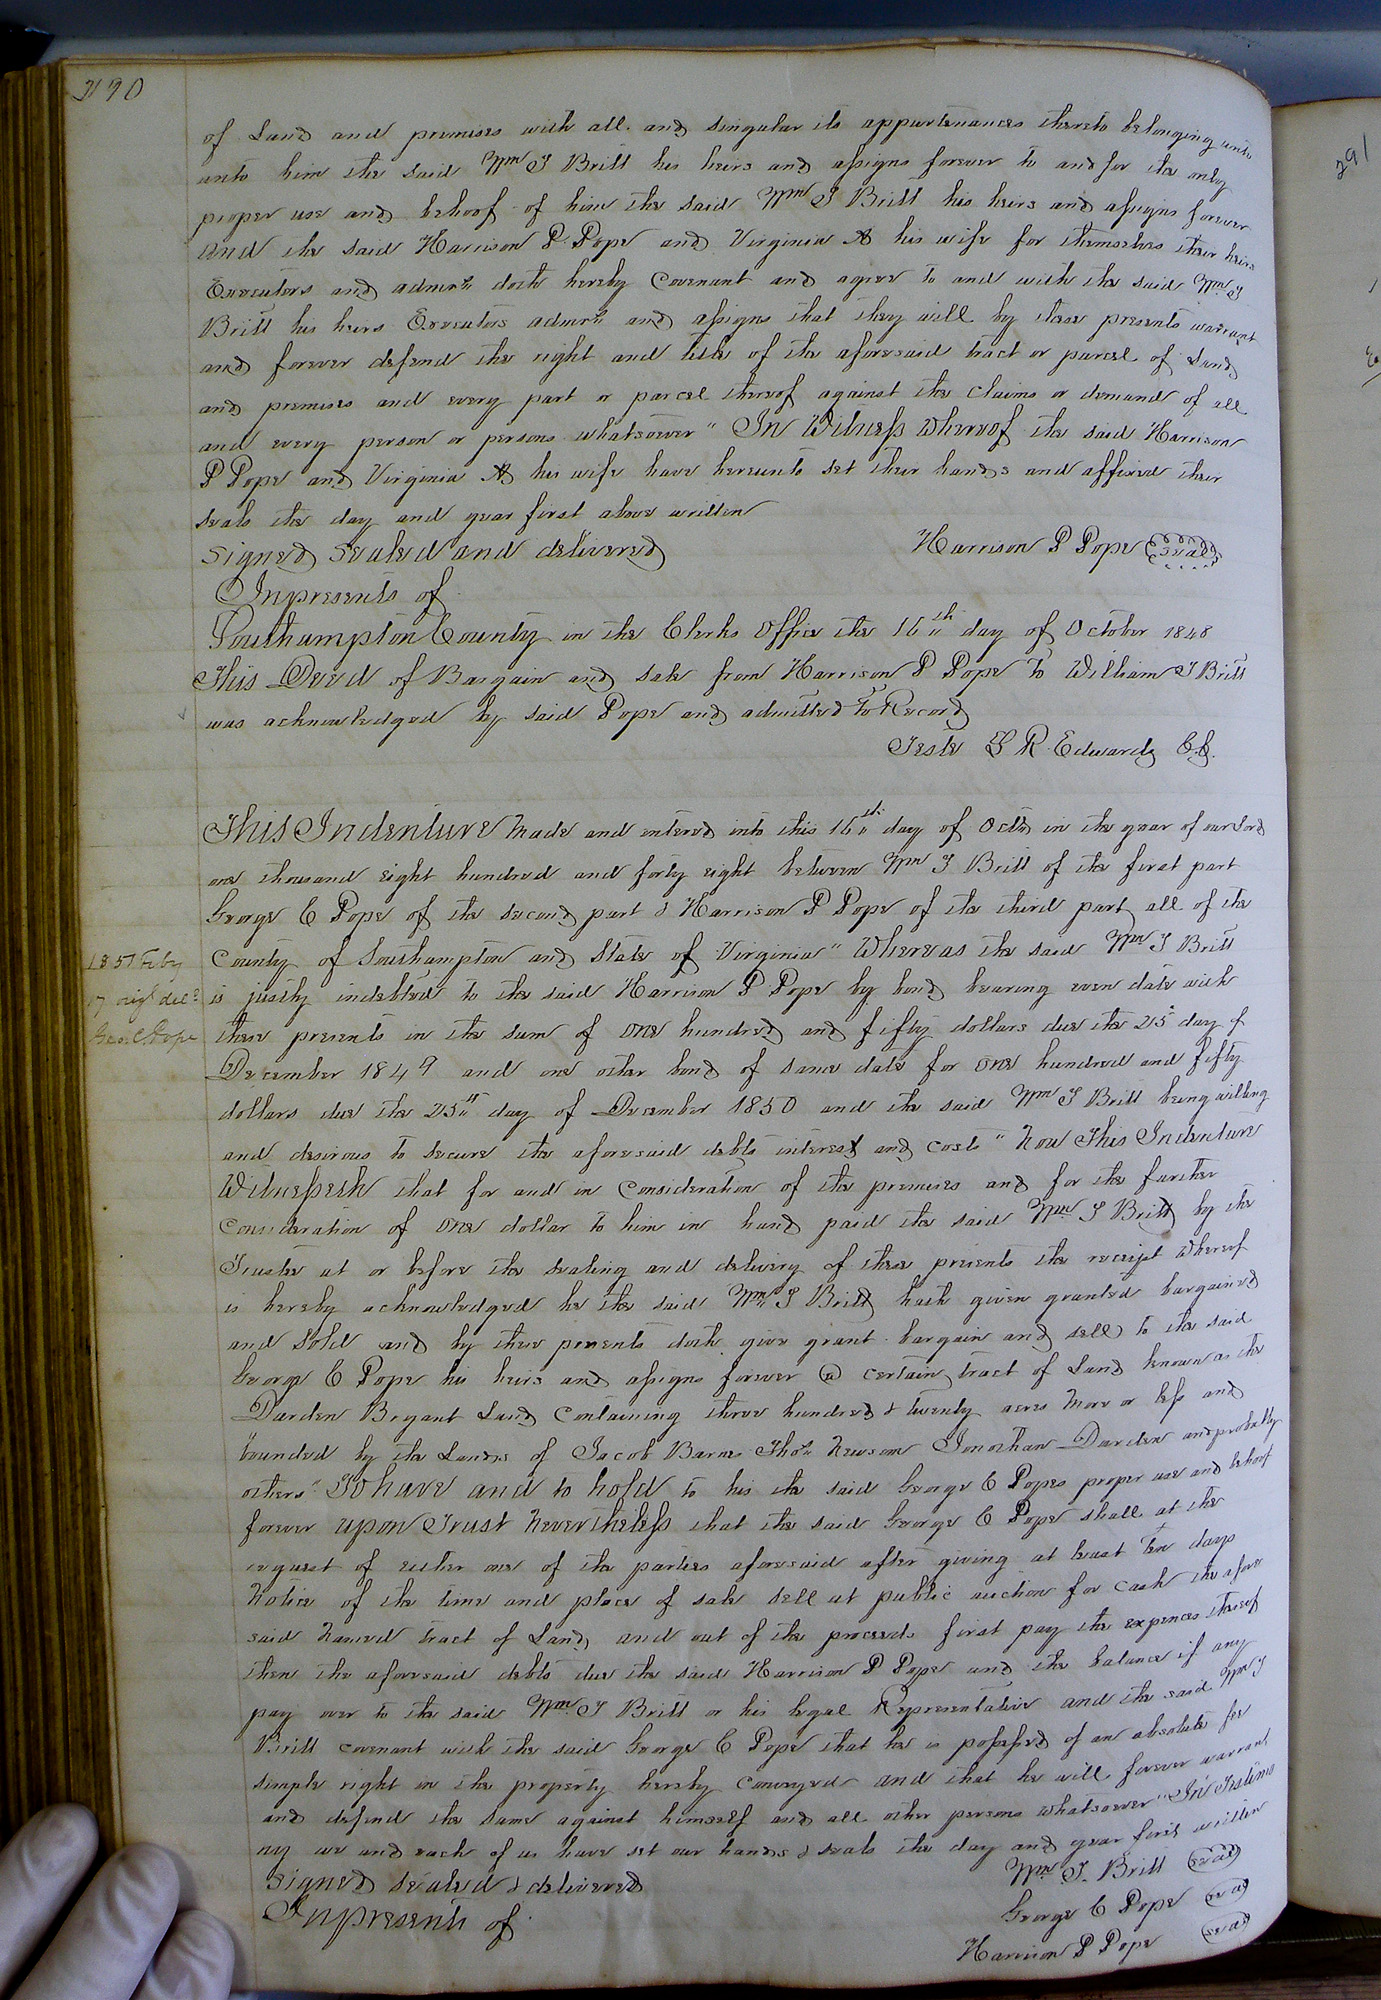 290
of Land and premises with all and singular its appurtenances thereto belonging unto
unto him the said Wm J Britt his heirs and assigns forever to and for the only
proper use and behoof of him the said Wm J Britt his heirs and assigns forever
and the said Harrison P Pope and Virginia A his wife for themselves their heirs
Executors and admrs doth hereby Covenant and agree to and with the said Wm J
Britt his heirs Executors admrs and assigns that they will by these presents warrant
and forever defend the right and title of the aforesaid tract or parcel of Land
and premises and every part or parcel thereof against the claims or demand of all
and every person or persons whatsoever " In Witness Whereof the said Harrison
P Pope and Virginia A his wife have hereunto set their hands and affixed their
seals the day and year first above written
Signed Sealed and delivered Harrison P Pope Seal
In presents of
Southampton County in the Clerks Office the 16th day of October 1848
This Deed of Bargain and sale from Harrison P Pope to William J Britt
was acknowledged by said Pope and admitted to Record
Teste L R Edwards C.C.
This Indenture Made and entered into this 16th day of Octr in the year of our Lord
one thousand eight hundred and forty eight between Wm J Britt of the first part
George C Pope of the second part & Harrison P Pope of the third part all of the
County of Southampton and State of Virginia " Whereas the said Wm J Britt
is justly indebted to the said Harrison P Pope by bond bearing even date with
these presents in the sum of one hundred and fifty dollars due the 25 day of
December 1849 and one other bond of same date for one hundred and fifty
dollars due the 25th day of December 1850 and the said Wm J Britt being willing
and desirous to secure the aforesaid debts interest and costs " Now This Indenture
Witnesseth that for and in Consideration of the premises and for the further
Consideration of one dollar to him in hand paid the said Wm J Britt by the
Trustee at or before the sealing and delivery of these presents the receipt Whereof
is hereby acknowledged he the said Wm J Britt hath given granted bargained
and sold and by these presents doth give grant bargain and sell to the said
George C Pope his heirs and assigns forever a certain tract of Land known as the
Darden Bryant Land Containing three hundred & twenty acres More or less and
bounded by the Lands of Jacob Barne Thos Newsom Jonathan Darden and probably
others " To have and to hold to his the said George C Popes proper use and behoof
forever upon Trust Nevertheless that the said George C Pope shall at the
request of either one of the parties aforesaid after giving at least Ten days
Notice of the time and place of sale sell at public auction for cash the afore
said Named tract of Land and out of the proceeds first pay the expences thereof
then the aforesaid debts due the said Harrison P Pope and the balance if any
pay over to the said Wm J Britt or his legal Representative and the said Wm J
Britt covenant with the said George C Pope that he is possessed of an absolute fee
simple right in the property hereby Conveyed and that he will forever warrant
and defend the same against himself and all other persons whatsoever " In Testimo
ny we and each of us have set our hands & seals the day and year first written
Signed Sealed & delivered Wm J. Britt Seal
In presents of George C Pope Seal
Harrison P Pope Seal
1851 Feby
17 origl deld
Geo. C Pope
291